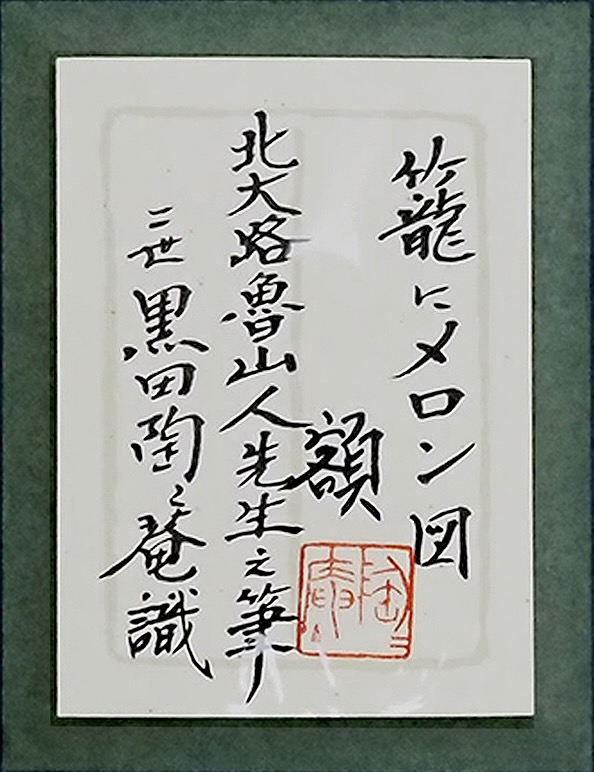 籠にメロン図
額
北大路魯山人先生之筆
三世 黒田陶々庵識